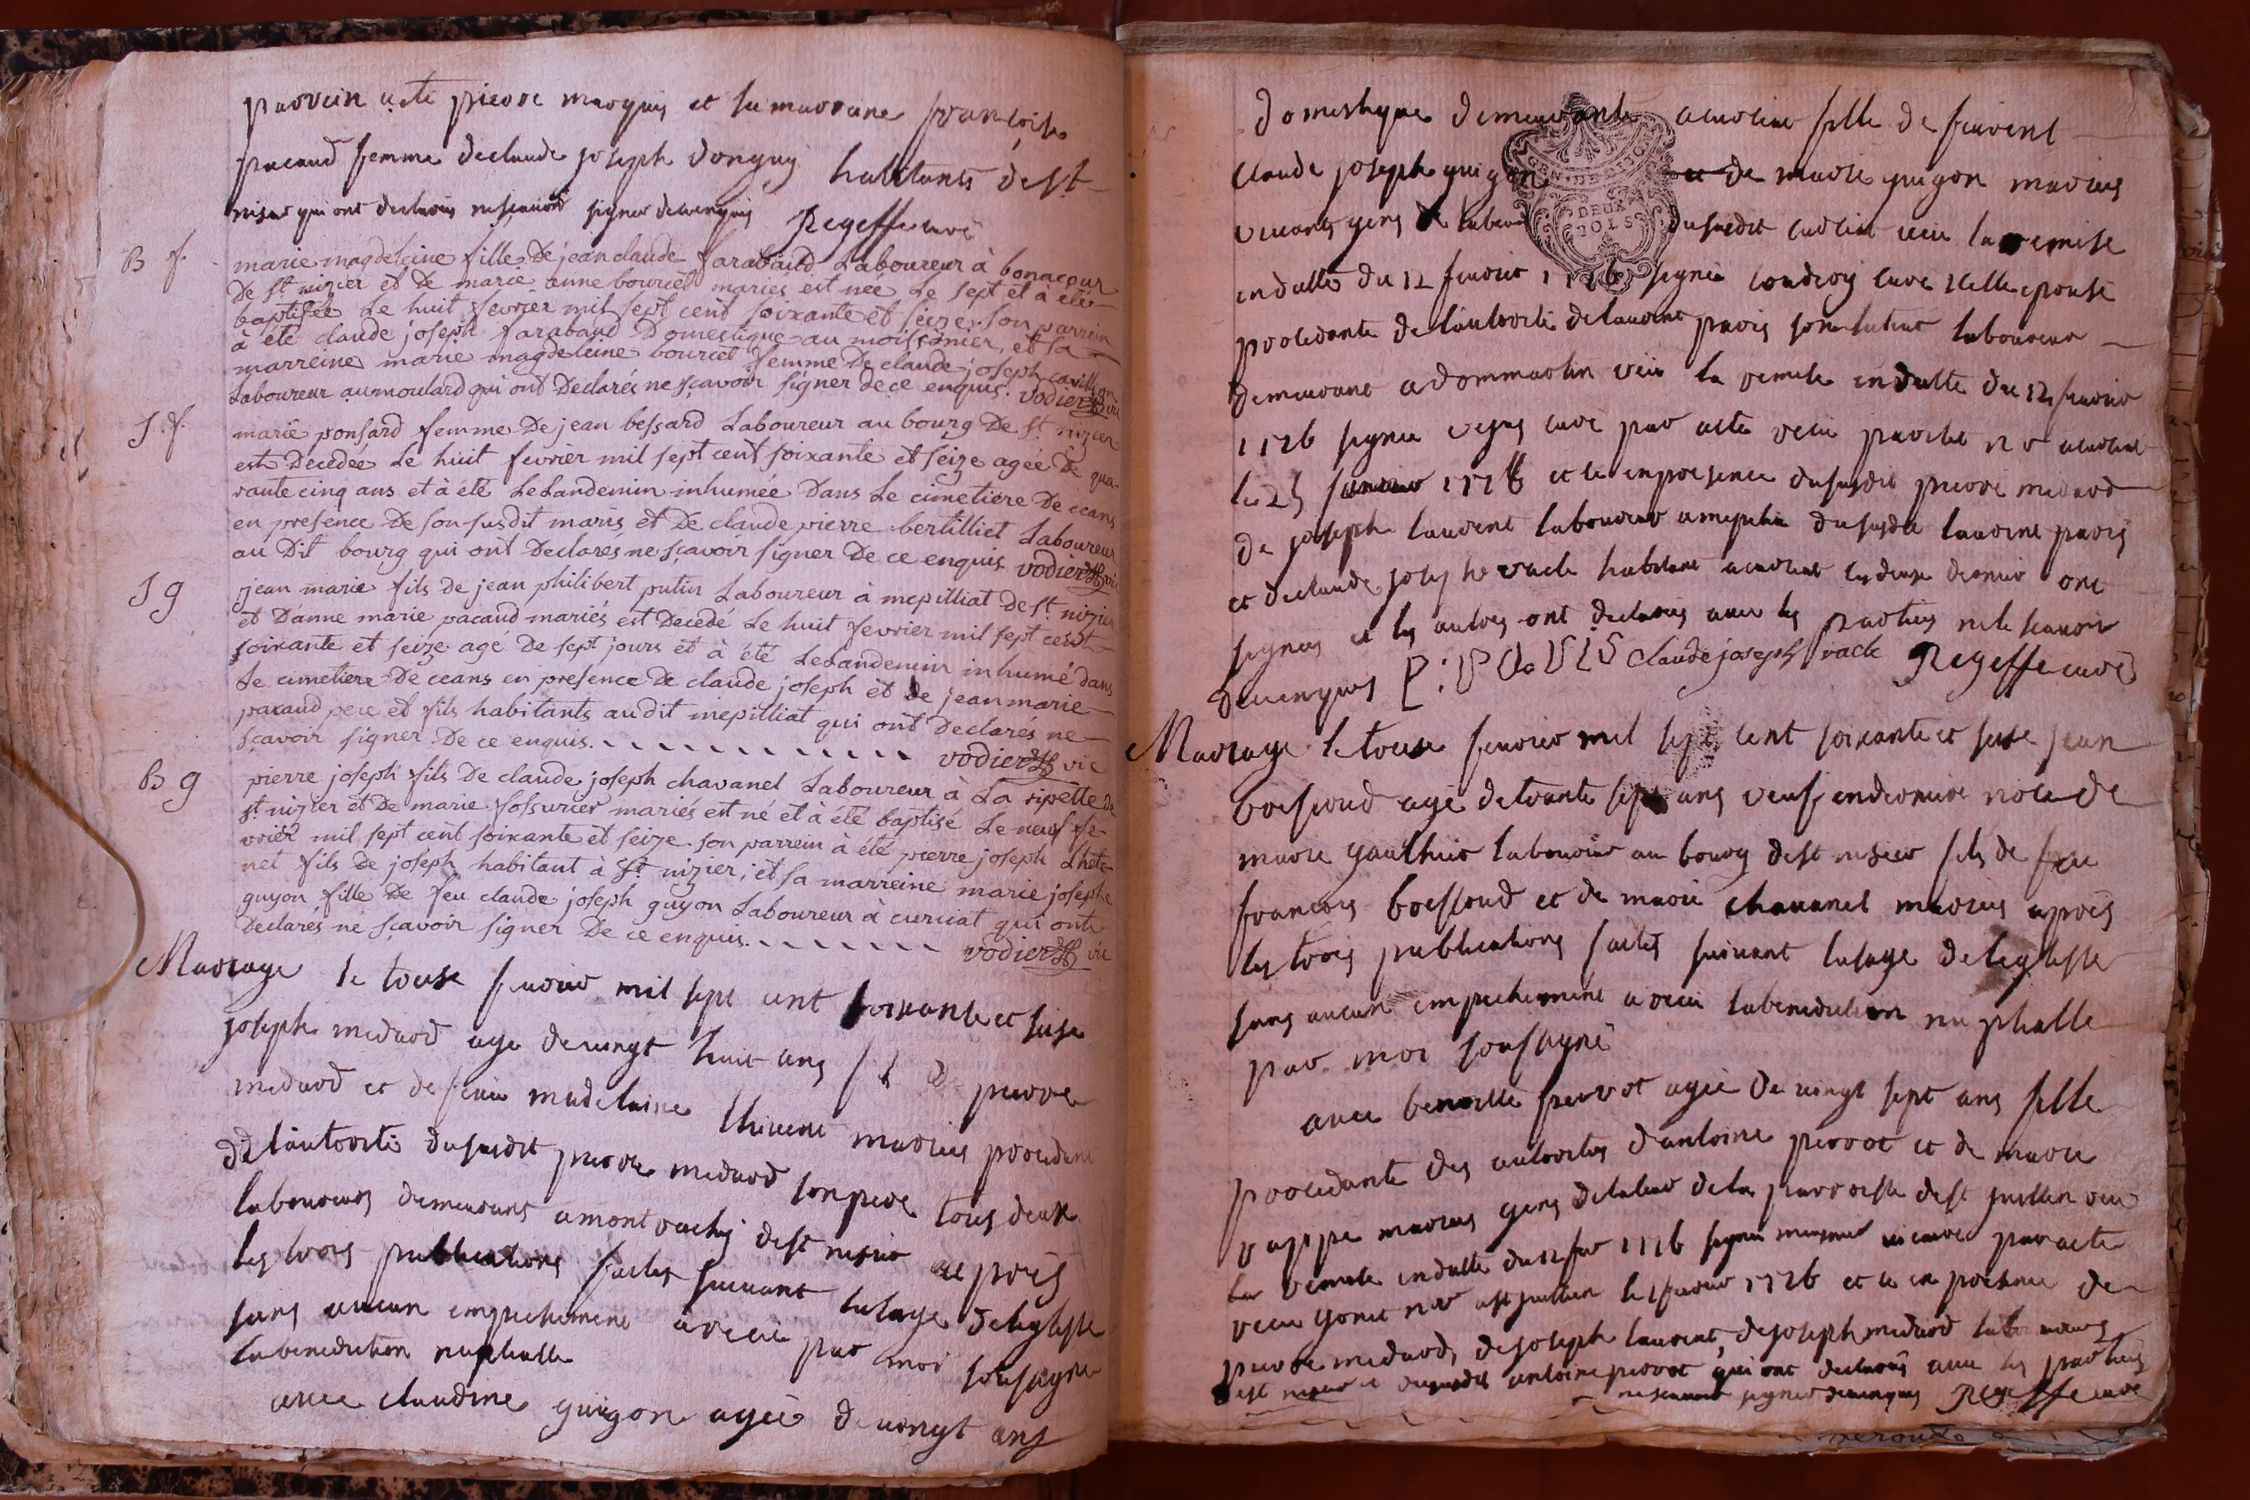 parrein a ete pierre marquis et sa marrane francoise
pacaud femme declaude joseph donguy habitants de st
nisier qui ont declarés nesçavoir signer decenquis Regeffe curé
B f.
marie magdeleine fille De jean claude farabaud Laboureur à bonacour
De st nizier et De marie anne bourcet mariés est née Le sept et à été
baptisée Le huit fevrier mil sept cent soixante et seize. son parrein
à été claude joseph farabaud Domestique au moissonier, et sa
marreine marie magdeleine bourcet femme De claude joseph cavillon
Laboureur aumoulard qui ont Declarés ne sçavoir signer de ce enquis. vodier vic
S. f.
marie ponsard femme De jean bessard Laboureur au bourg De st nizier
est Decedée Le huit fevrier mil sept cent soixante et seize agée De qua-
rante cinq ans et à été Lelandemin inhumée Dans Le cimetiere De ceans
en presence De son susdit maris et De claude pierre bertilliet Laboureur
au Dit bourg qui ont Declarés ne sçavoir signer De ce enquis vodier vic
S g
jean marie fils de jean philibert putin Laboureur à mepilliat De st nizier
et D'anne marie pacaud mariés est Decedé Le huit fevrier mil sept cent
soixante et seize agé De sept jours et à été Lelandemin inhumé dans
Le cimetiere De ceans en presence De claude joseph et de jean marie
pacaud pere et fils habitants audit mepilliat qui ont Declarés ne
sçavoir signer De ce enquis. vodier vic
B g
pierre joseph fils De claude joseph chavanel Laboureur à La ripette de
st nizier et De marie fossurier mariés est né et à été baptisé Le neuf fe-
vrier mil sept cent soixante et seize son parrein à été pierre joseph
net fils De joseph habitant à st nizier; et sa marreine marie josephe
guyon fille De feu claude joseph guyon Laboureur à curciat qui onte
Declarés ne sçavoir signer De ce enquis. vodier vic
Mariage le treise fevrier mil sept cent soixante et seise
joseph medard age devingt huit ans de pierre
medard et de feue madelaine thivent mariés procedant
de lautorité dususdit pierre medard sonpere tous deux
laboureurs demeurans amontrachy dest nisier apres
les trois publications faites suivant lusage delegliste
sans aucun empechement areceu par moi sousigné
labenediction nuptialle
avec claudine guigon agée devingt ans
domestique demeurante acurciat fille de feuvent
claude joseph guigon et de marie guigon mariés
vivants gens de labeur dususdit curciat veu la remise
endatte du 12 fevrier 1776 signée coudroy curé icelle epouse
procedante de lautorité delaurent pavis son tuteur laboureur
demeurant adommartin veu la remise endatte du 12 fevrier
1776 signée curé par acte veu
le 25 1776 et ce enpresence dususdit pierre medard
de joseph laurent laboureur amepilia dususdit laurent pavis
et declaude joseph vacle habitant acurciat lesdeux dernier ont
signes et les autres ont declarés avec les parties nele scavoir
decenquis P: PAVIS claude joseph vacle Regeffe curé
Mariage le treise fevrier mil sept cent soixante et seise jean
agé detrante sept ans veuf enderniere noce de
marie gauthier laboureur au bourg dest nisier fils de feu
francois et de marie chavanel mariés apres
les trois publications faites suivant lusage delegliste
sans aucun empechement a receu labenediction nuptialle
par moi sousigné
avec benoitte perrot agée de vingt sept ans fille
procedante des autorites dantoine perrot et de marie
vappe mariés gens delabeur dela parroisse dest jullien veu
la remise endatte du 12 fer 1776 signée vicaire par acte
1776 et ce en presence de
pierre medard, de joseph laurent, de joseph medard laboureurs
dest nisier et dususdit antoine perrot qui ont declarés avec les parties
nescavoir signer decenquis Regeffe curé
GEN. DE DIJON
DEUX
SOLS